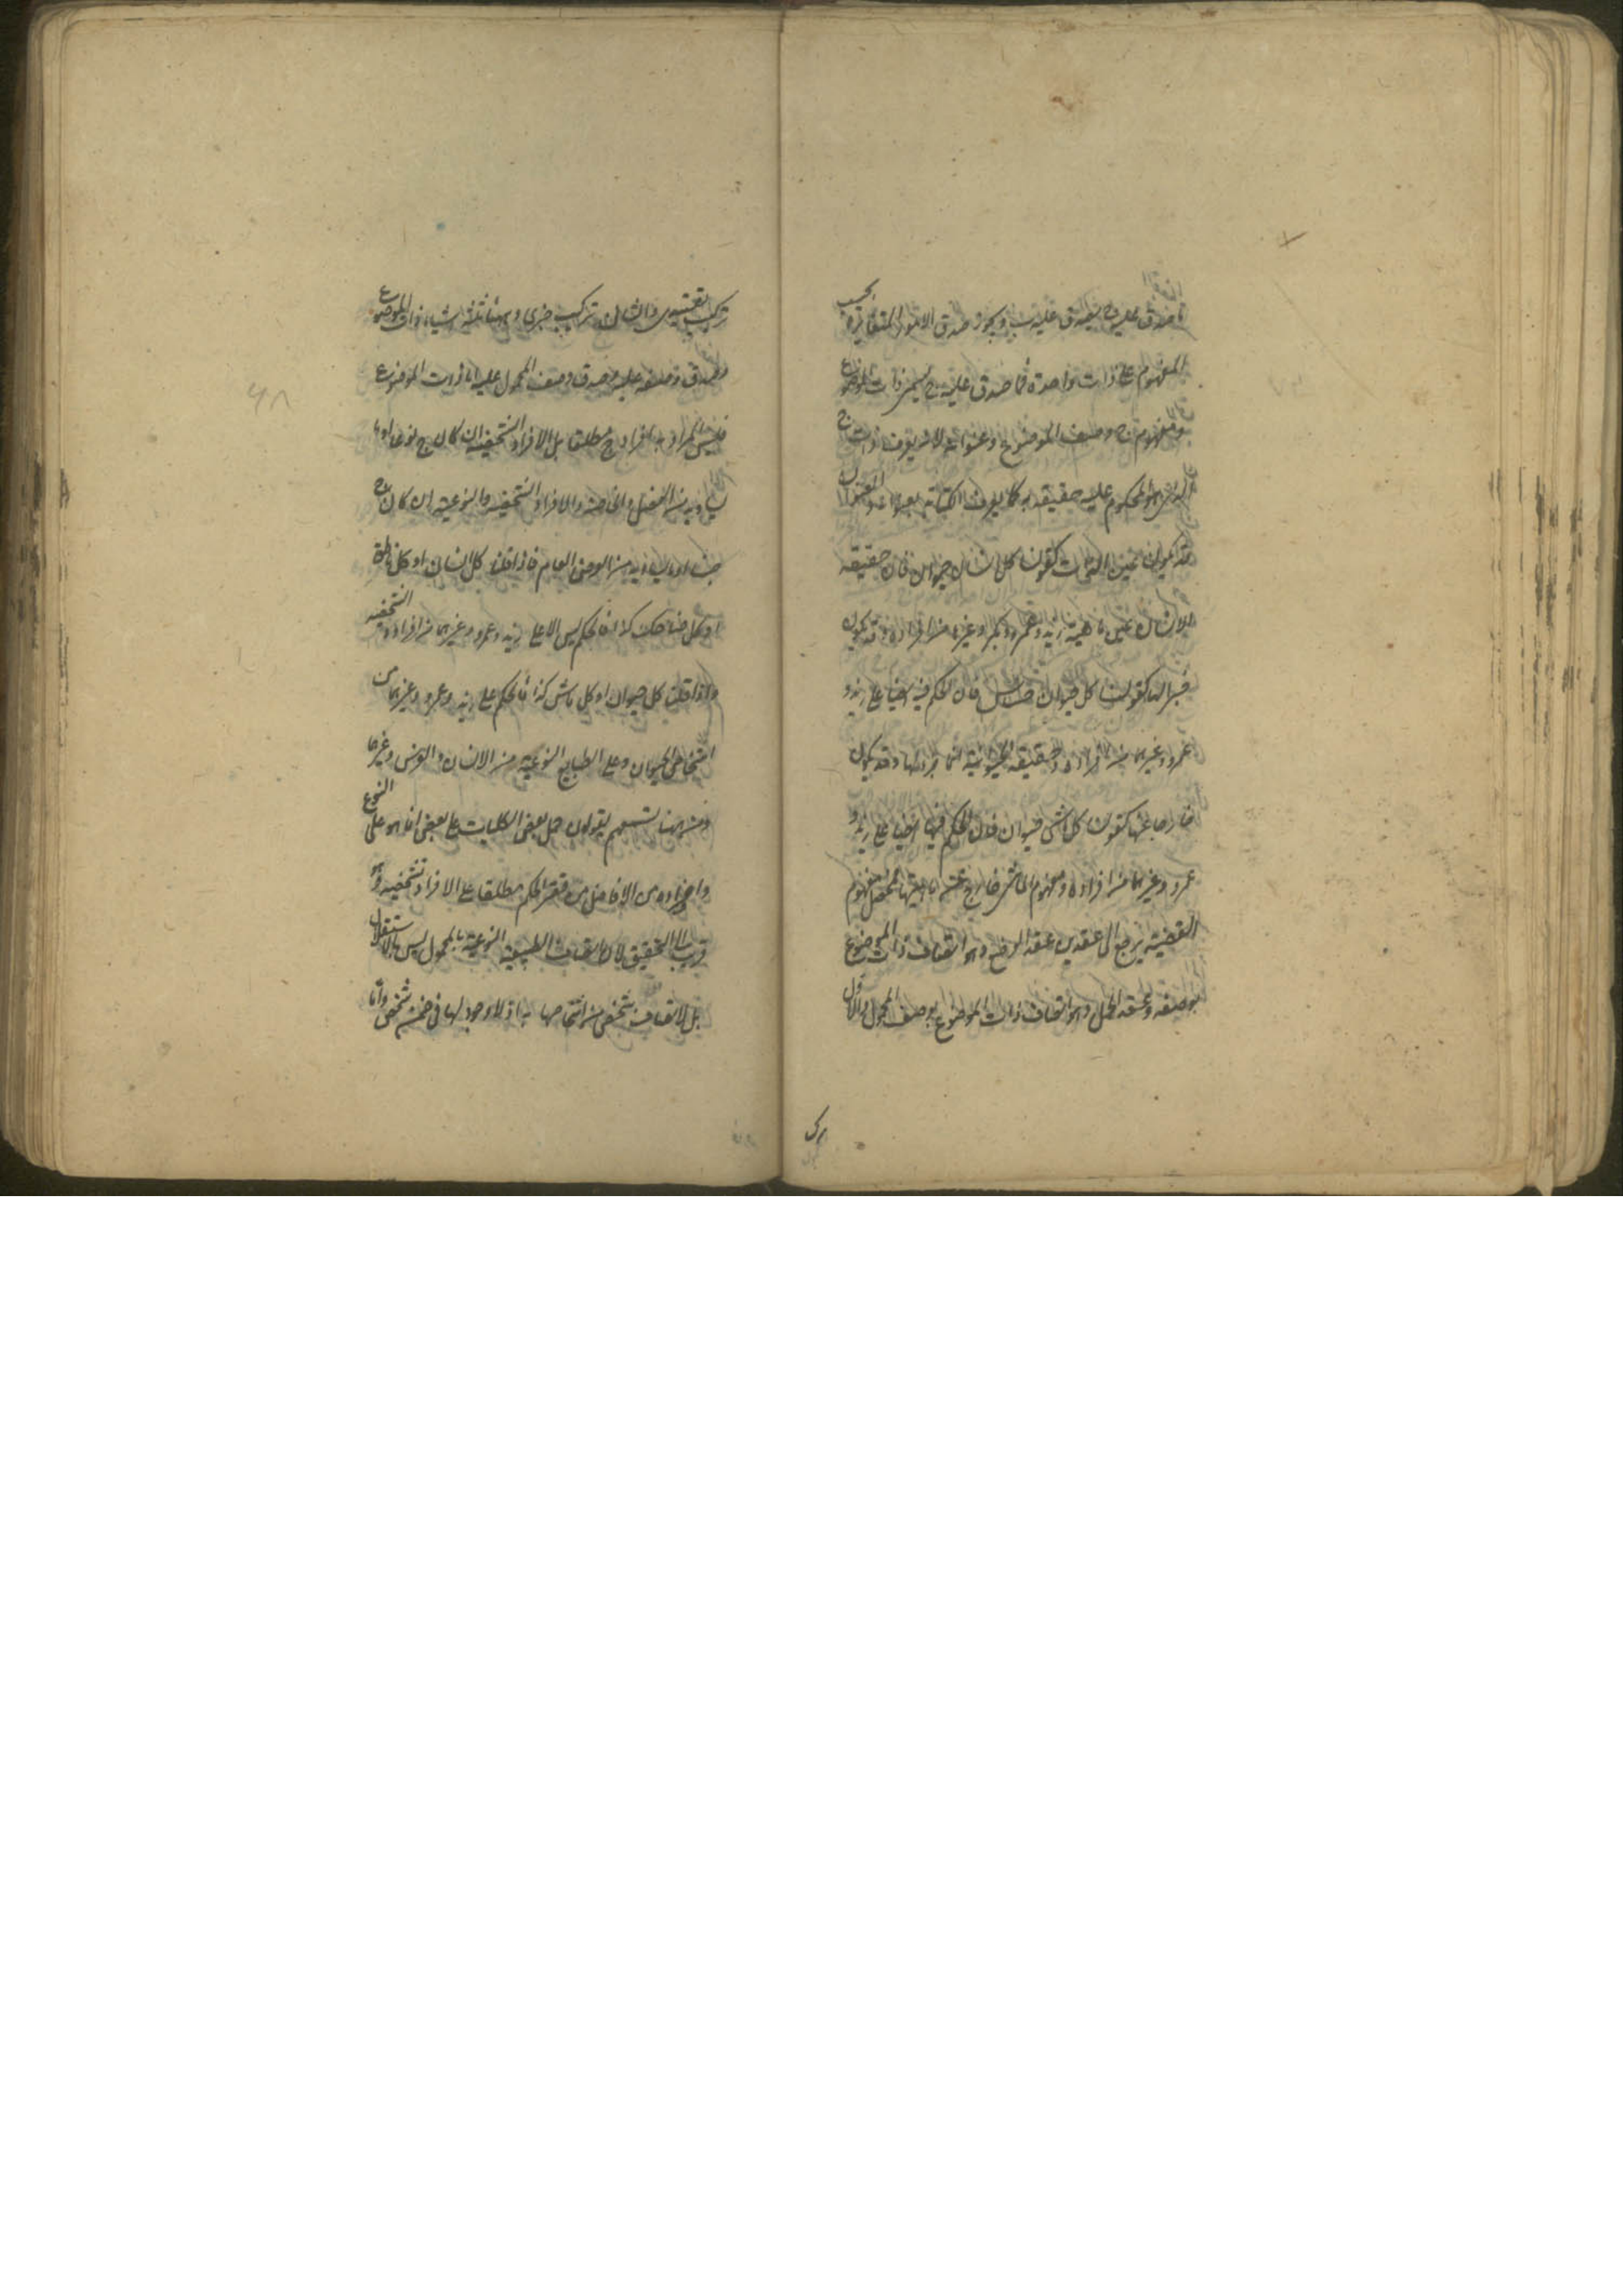 ما صدق عليه ج يصدق عليه ب ويجوز صدق الامور المتغايرة بحسب
المفهوم على ذات واحدة فما صدق عليه ج يسمى ذات الموضوع
ومفهوم ج وصف الموضوع وعنوانه لانه يعرف به ذات ج
الذي هو المحكوم عليه حقيقة كما يعرف الكتاب بعنوانه والعنوان
قد يكون عين الذات كقولنا كل انسان حيوان فان حقيقة
الانسان عين ماهية زيد وعمرو وبكر وغيرهم من افراده وقد يكون
جزءا لها كقولنا كل حيوان حساس فان الحكم فيه ايضا على زيد و
عمرو وغيرهما من افراده وحقيقة الحيوانية انما جزء لها وقد يكون
خارجا عنها كقولنا كل ماش حيوان فان الحكم فيها ايضا على زيد و
عمرو وغيرهما من افراده ومفهوم الماشى خارج عن ماهيتها فمحصل مفهوم
القضية يرجع الى عقدين عقد الوضع وهو اتصاف ذات الموضوع
بوصفه وعقد الحمل وهو اتصاف ذات الموضوع بوصف المحمول والاول
تركيب تقييدى والثانى تركيب خبرى وههنا ثلثة اشياء ذات الموضوع
وصدق وصفه عليه وصدق وصف المحمول عليه اما ذات الموضوع
فليس المراد به افراد ج مطلقا بل الافراد الشخصية ان كان ج نوعا او ما
يساويه من الفصل والخاصة والافراد الشخصية والنوعية ان كان ج
جنسا او ما يساويه من العرض العام فاذا قلنا كل انسان او كل ناطق
او كل ضاحك كذا فالحكم ليس الا على زيد وعمرو وغيرهما من افراده الشخصية
واذا قلنا كل حيوان او كل ماش كذا فالحكم على زيد وعمرو وغيرهما من
اشخاص الحيوان وعلى الطبايع النوعية من الانسان والفرس وغيرها
ومن ههنا تسمعهم يقولون حمل بعض الكليات على بعض انما هو على النوع
وافراده ومن الافاضل من قصر الحكم مطلقا على الافراد الشخصية وهو
قريب الى التحقيق لان اتصاف الطبيعة النوعية بالمحمول ليس بالاستقلال
بل لاتصاف شخص من اشخاصها به اذ لا وجود لها الا فى ضمن شخص واما